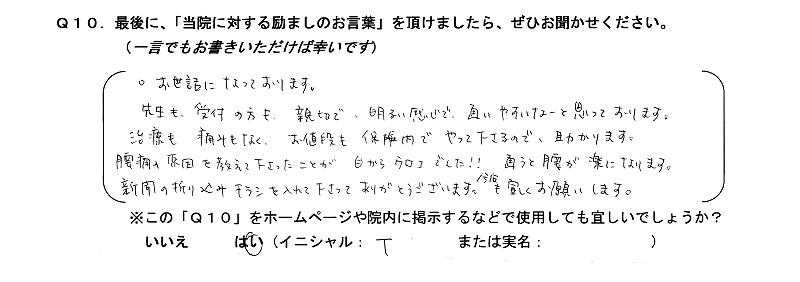 Q10．最後に、「当院に対する励ましのお言葉」を頂けましたら、ぜひお聞かせください。
（一言でもお書きいただけば幸いです）
○ お世話になっております。
先生も、受付の方も、親切で、明るい感じで、通いやすいなーと思っております。
治療も痛みもなく、お値段も保険内でやって下さるので、助かります。
腰痛の原因を教えて下さったことが目からウロコでした!! 通うと腰が楽になります。
新聞の折り込みチラシを入れて下さってありがとうございます。今後も宜しくお願いします。
※この「Q10」をホームページや院内に掲示するなどで使用しても宜しいでしょうか？
いいえ はい（イニシャル： T または実名： ）